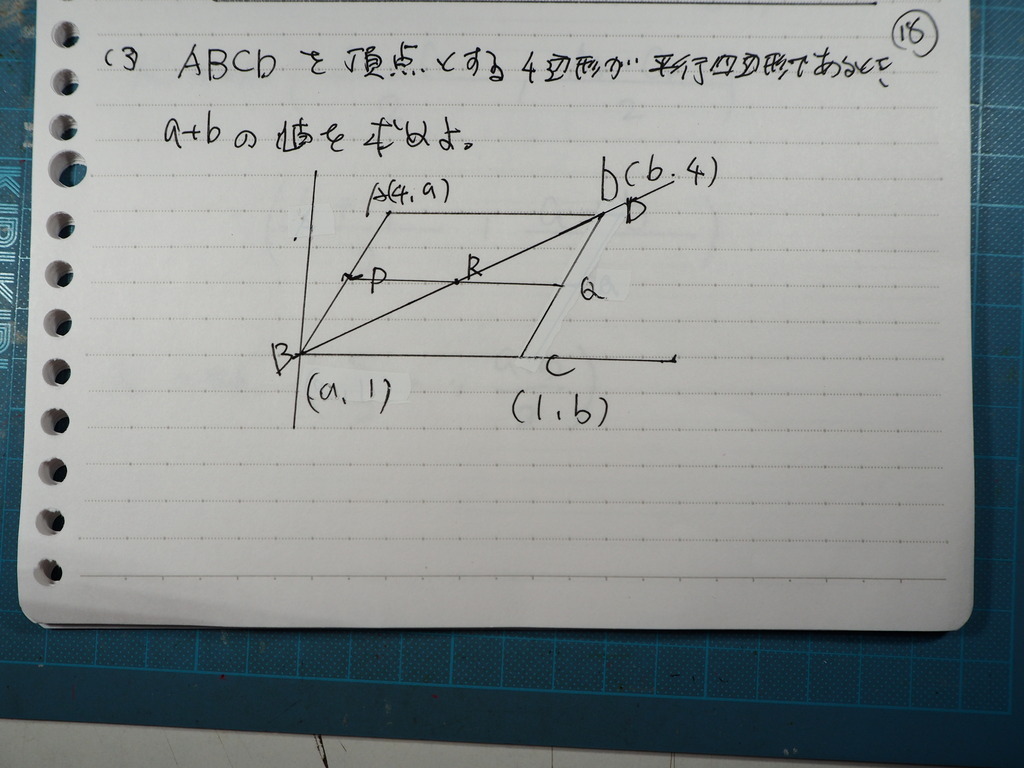 18
(3 ABCDを頂点とする4辺形が平行四辺形であるとき、
a+bの値を求めよ。
D(b.4)
A(4,a)
D
R
P
Q
B
C
(a,1)
(1,b)